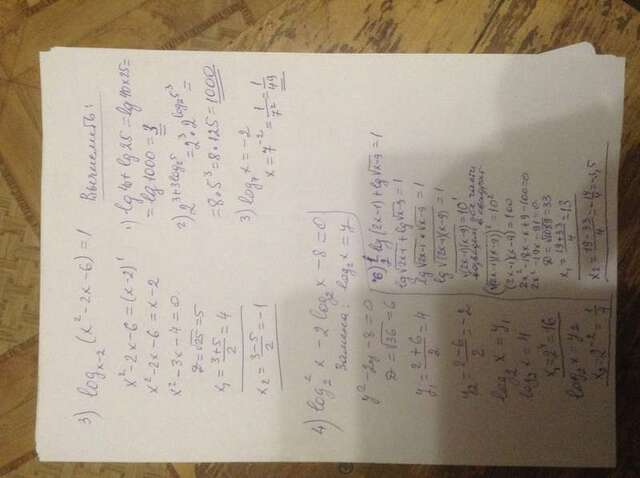 3) log_{x-2} (x²-2x-6) = 1
x²-2x-6 = (x-2)¹
x²-2x-6 = x-2
x²-3x-4 = 0
D = √25 = 5
x₁ = (3+5)/2 = 4
x₂ = (3-5)/2 = -1
Вычислить:
1) lg40 + lg25 = lg40×25 =
= lg1000 = 3
2) 2^{3+3log₂5} = 2³·2^{log₂5³} =
= 8·5³ = 8·125 = 1000
3) log₇x = -2
x = 7⁻² = 1/7² = 1/49
4) log₂²x - 2log₂x - 8 = 0
Замена: log₂x = y
y² - 2y - 8 = 0
D = √36 = 6
y₁ = (2+6)/2 = 4
y₂ = (2-6)/2 = -2
log₂x = y₁
log₂x = 4
x₁ = 2⁴ = 16
log₂x = y₂
x₂ = 2⁻² = 1/4
6) 1/2 lg(2x-1) + lg√x-9 = 1
lg√2x-1 + lg√x-9 = 1
lg√2x-1 * √x-9 = 1
lg√(2x-1)(x-9) = 1
√(2x-1)(x-9) = 10¹
возводем две части
в квадрат
(√(2x-1)(x-9))² = 10²
(2x-1)(x-9) = 100
2x²-18x-x+9-100=0
2x²-19x-91=0
D = √1089 = 33
x₁ = (19+33)/4 = 13
x₂ = (19-33)/4 = -14/4 = -3,5